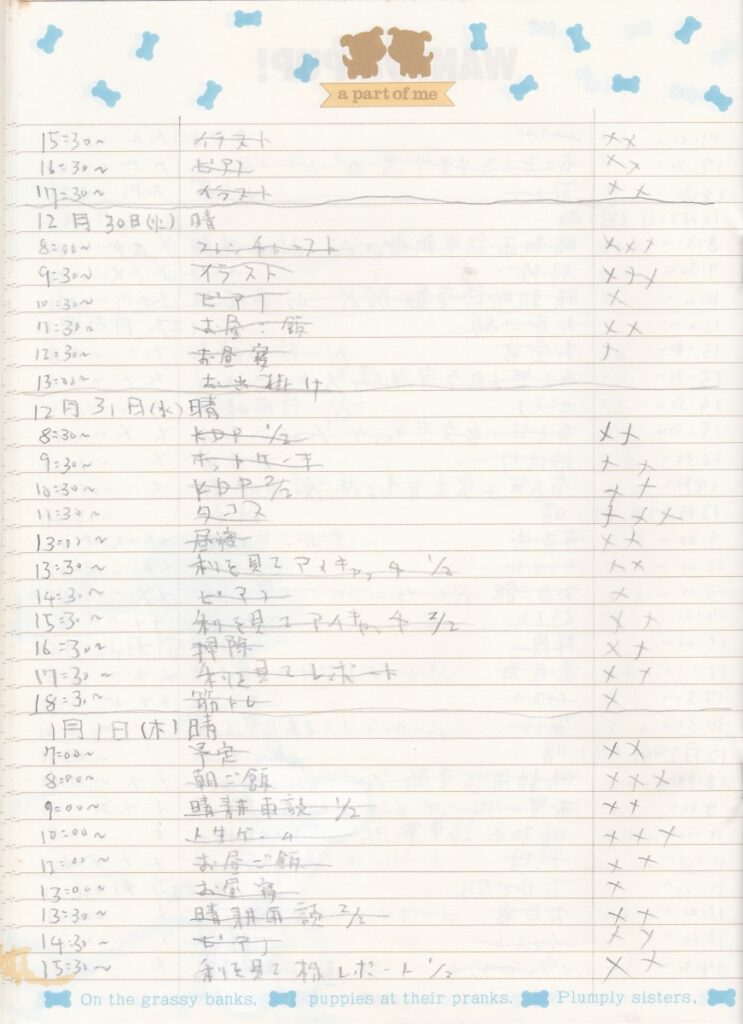 a part of me
15:30~ イラスト ××
16:30~ ピアノ ××
17:30~ イラスト ××
12月30日(火) 晴
8:00~ フレンチトースト ×××
9:30~ イラスト ×××
10:30~ ピアノ ×
11:30~ お昼ご飯 ××
12:30~ お昼寝 ×
13:00~ お出掛け
12月31日(水) 晴
8:30~ KDP 1/2 ××
9:30~ ホットケーキ ××
10:30~ KDP 2/2 ××
11:30~ タコス ×××
13:00~ 昼寝 ××
13:30~ 利を見てアイキャッチ 1/2 ××
14:30~ ピアノ ×
15:30~ 利を見てアイキャッチ 2/2 ××
16:30~ 掃除 ××
17:30~ 利を見てレポート ××
18:30~ 筋トレ ×
1月1日(木) 晴
7:00~ 予定 ××
8:00~ 朝ご飯 ×××
9:00~ 晴耕雨読 1/2 ××
10:00~ 人生ゲーム ×××
12:00~ お昼ご飯 ××
13:00~ お昼寝 ×
13:30~ 晴耕雨読 2/2 ××
14:30~ ピアノ ××
15:30~ 利を見て株レポート 1/2 ××
On the grassy banks. puppies at their pranks. Plumply sisters.